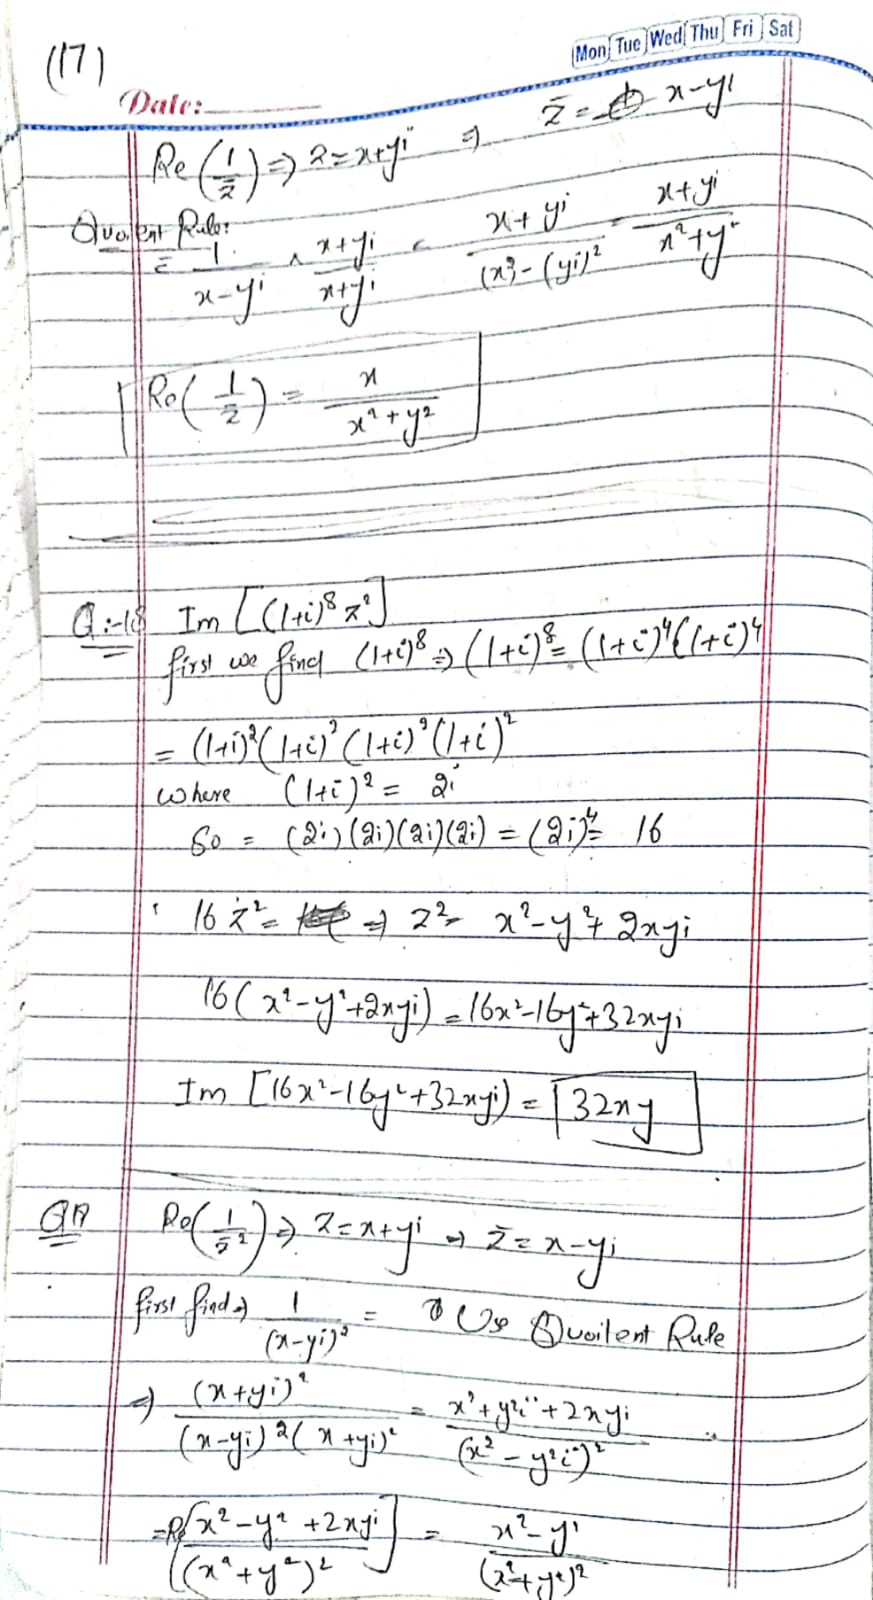 (17)
Mon Tue Wed Thu Fri Sat
Date:
Re(1/z̄) ⇒ z=x+yi ⇒ z̄ = x-yi
Quoilent Rule:
= 1/(x-yi) × (x+yi)/(x+yi) = (x+yi)/((x²)-(yi)²) = (x+yi)/(x²+y²)
Re(1/z̄) = x/(x²+y²)
Q:-18 Im [(1+i)⁸ z²]
first we find (1+i)⁸ ⇒ (1+i)⁸= (1+i)⁴(1+i)⁴
= (1+i)²(1+i)²(1+i)²(1+i)²
where (1+i)² = 2i
So = (2i)(2i)(2i)(2i) = (2i)⁴= 16
16 z² = ⇒ z²= x²-y²+ 2xyi
16(x²-y²+2xyi) = 16x²-16y²+32xyi
Im [16x²-16y²+32xyi) = 32xy
Q19 Re(1/z̄²) ⇒ z=x+yi ⇒ z̄=x-yi
first find⇒ 1/(x-yi)² = Use Quoilent Rule
⇒ (x+yi)²/((x-yi)²(x+yi)²) = (x²+y²i²+2xyi)/(x²-y²i²)²
=Re[(x²-y²+2xyi)/((x²+y²)²] = (x²-y²)/(x²+y²)²